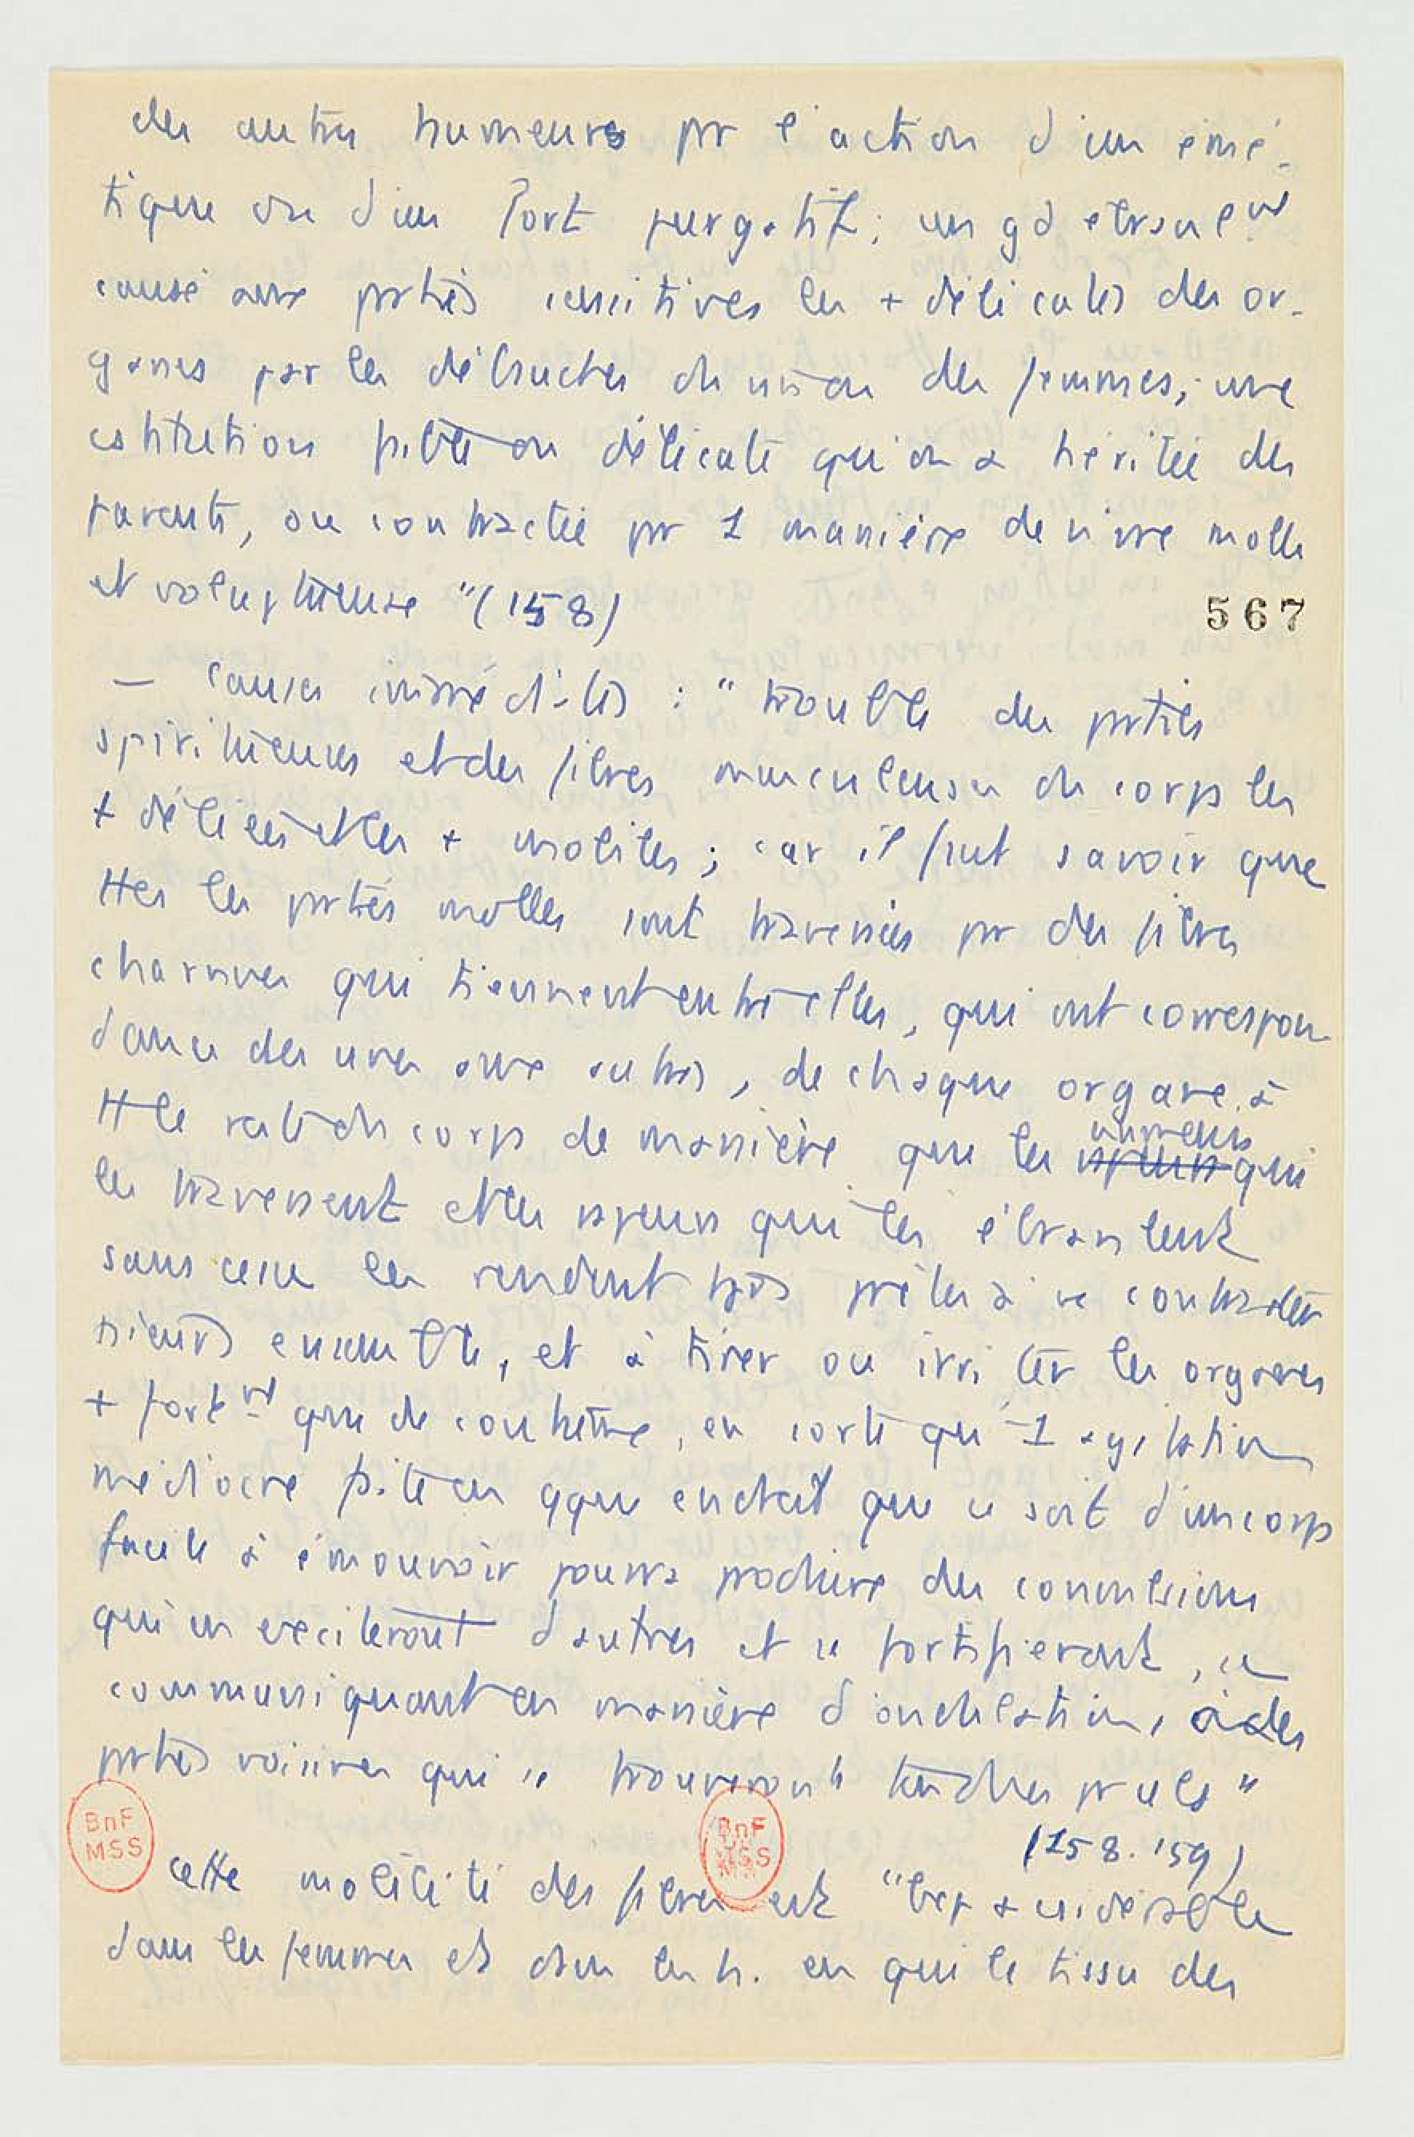 des autres humeurs pr l'action d'un émé-
tique ou d'un fort purgatif; un gd ébranlemt
causé aux prties sensitives les + délicates des or-
ganes par les débauches du vin ou des femmes; une
cstitution faible ou délicate qu'on a héritée des
parents, ou contractée pr 1 manière de vivre molle
et voluptueuse" (158)
567
— Causes immédiates : "trouble des prties
spiritueuses et des fibres musculeuses du corps les
+ déliées et les + mobiles; car il faut savoir que
ttes les prties molles sont traversées pr des fibres
charnues qui tiennent entre elles, qui ont correspon
dance des unes aux autres, de chaque organe à
tt le reste du corps de manière que les humeurs qui
les traversent et les vapeurs qui les ébranlent
sans cesse les rendent très prêtes à se contracter
ensemble, et à tirer ou irriter les organes
+ fortemt que de coutume, en sorte qu'1 agitation
médiocre faite en qque endroit que ce soit d'un corps
facile à émouvoir pourra produire des convulsions
qui en exciteront d'autres et se fortifieront, se
communiquant en manière d'ondulation, à des
prties voisines qui se trouveront tendues "
(158.159)
BnF
MSS
BnF
MSS
cette mobilité des fibres est "bcp + csidérable
dans les femmes et dans les h. en qui le tissu des